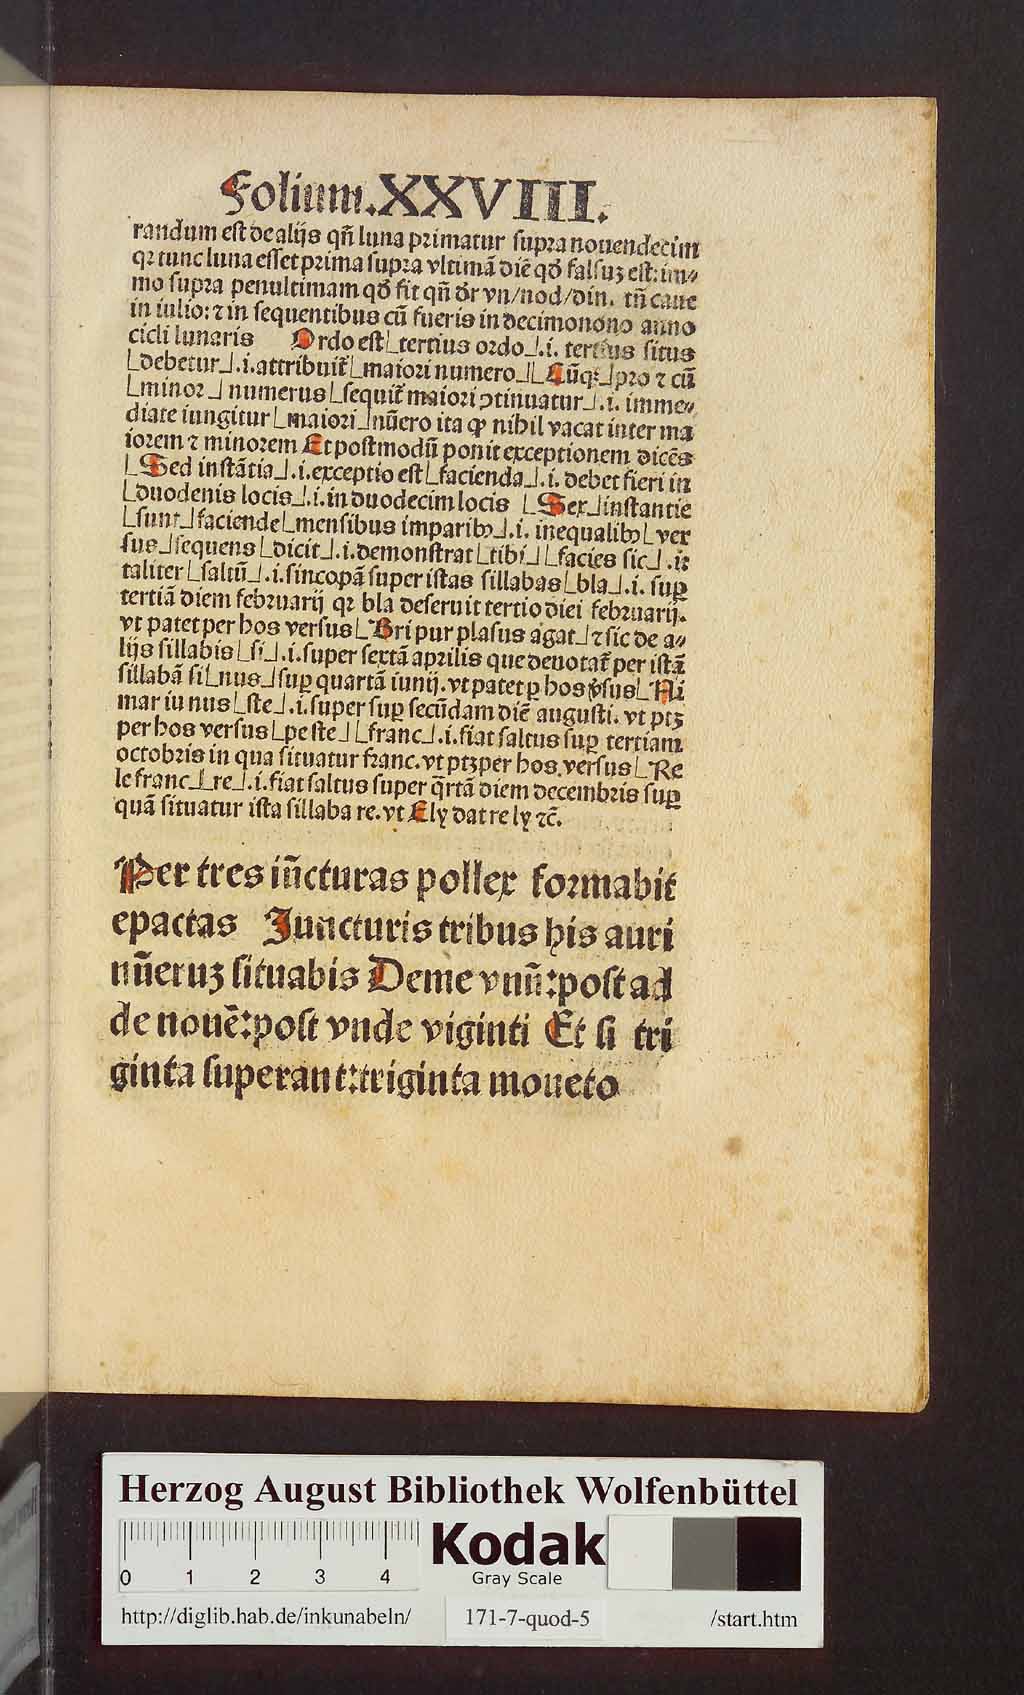 Folium.XXVIII.
randum est de alijs qñ luna primatur supra nouendecim
qꝛ tunc luna esset prima supra vltimā diē qð falsuꝫ est: im⸗
mo supra penultimam qð fit qñ dr̄ vn/nod/din. tñ caue
in iulio: ⁊ in sequentibus cū fueris in decimonono anno
cicli lunaris Ordo est⌊tertius ordo⌋.i. tertius situs
⌊debetur⌋.i.attribuit̄⌊maiori numero⌋⌊Cūqꝫ⌋pro ⁊ cū
⌊minor⌋ numerus⌊sequit̄ maiori ꝯtinuatur⌋.i. imme⸗
diate iungitur⌊maiori⌋nūero ita ꝙ nihil vacat inter ma
iorem ⁊ minorem Et postmodū ponit exceptionem dicēs
⌊Sed instātia⌋.i.exceptio est⌊facienda⌋.i. debet fieri in
⌊duodenis locis⌋.i. in duodecim locis ⌊Sex⌋instantie
⌊sunt⌋faciende⌊mensibus imparibꝰ⌋.i. inequalibꝰ⌊ver
sus⌋sequens⌊dicit⌋.i.demonstrat⌊tibi⌋⌊facies sic⌋.i:
taliter⌊saltū⌋.i.sincopā super istas sillabas⌊bla⌋.i. suꝑ
tertiā diem februarij qꝛ bla deseruit tertio diei februarij.
vt patet per hos versus⌊Bri pur plasus agat⌋⁊ sic de a⸗
lijs sillabis⌊si⌋.i.super sextā aprilis que denotat̄ per istā
sillabā si⌊nus⌋suꝑ quartā iunij. vt patet ꝑ hos v̓sus⌊Ni
mar iu nus⌊ste⌋.i.super suꝑ secūdam diē augusti. vt ptꝫ
per hos versus⌊pe ste⌋⌊franc⌋.i.fiat saltus suꝑ tertiam
octobris in qua situatur franc. vt ptꝫ per hos versus⌊Re
le franc⌊re⌋.i.fiat saltus super q̄rtā diem decembris suꝑ
quā situatur ista sillaba re. vt Ely dat re ly ⁊c̄.
Per tres iūcturas pollex formabit
epactas Juncturis tribus his auri
nūeruꝫ situabis Deme vnū:post ad
de nouē:post vnde viginti Et si tri
ginta superant:triginta moueto
Herzog August Bibliothek Wolfenbüttel
0 1 2 3 4
Kodak
Gray Scale
http://diglib.hab.de/inkunabeln/ 171-7-quod-5 /start.htm